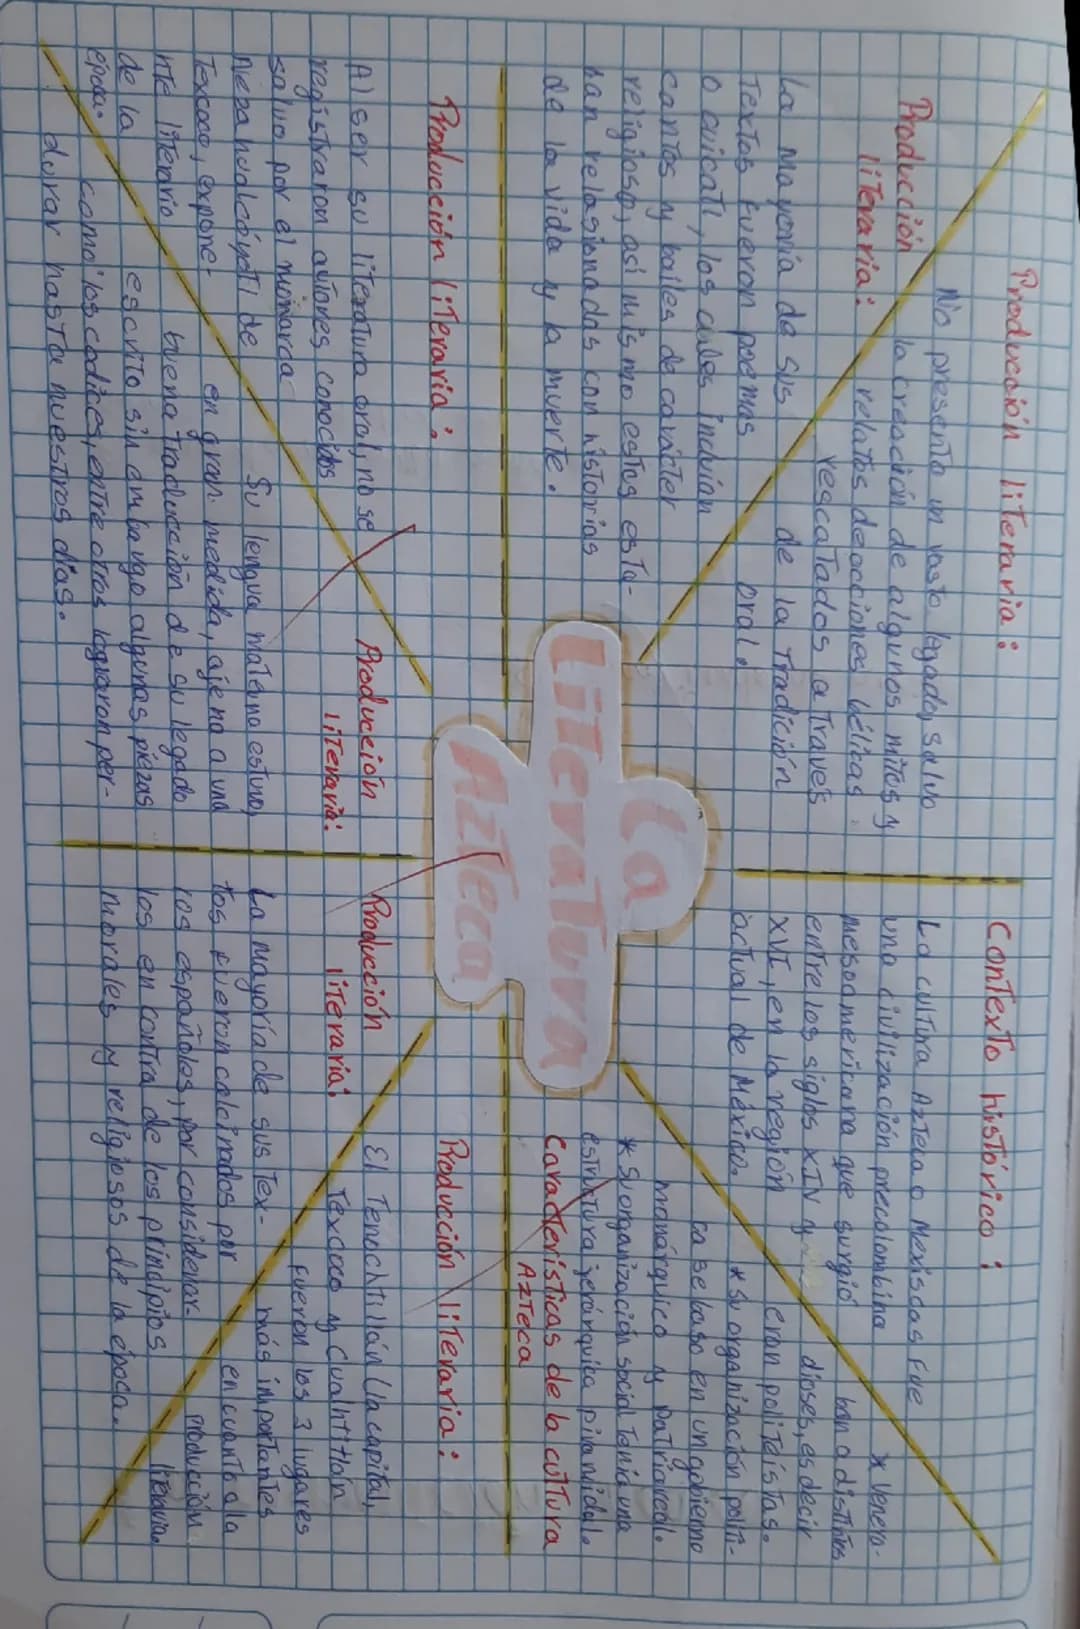 La
Literatura
Azteca
Contexto histórico:
La cultura Azteca o Mexiscas fue
una civilización precolombina
mesoamericana que surgió
entre los siglos XIV y
XVI, en la región
actual de México.
* Venera-
ban a distintos
dioses, es decir
eran politeístas.
* Su organización polít-
ca se baso en un gobierno
monárquico y patriarcal.
* Su organización social tenía una
estructura jerárquica piramidal.
Características de la cultura
Azteca
Producción literaria:
El Tenochtitlán (la capital,
Texcoco y Cuahtitlán
fueron los 3 lugares
más importantes
en cuanto a la
producción
literaria.
Producción
literaria:
La mayoría de sus tex-
tos fueron calcinados por
los españoles, por considerar-
los en contra de los principios
morales y religiosos de la época.
Producción
literaria:
Su lengua materna estuvo,
en gran medida, ajena a una
buena traducción de su legado
escrito sin embargo algunas piezas
como los codices, entre otros lograron per-
durar hasta nuestros días.
Producción literaria:
Al ser su literatura oral, no se
registraron autores conocidos
salvo por el monarca
Nezahualcóyotl de
Texcoco, expone-
nte literario
de la
época.
Producción
literaria:
La mayoría de sus
Textos fueron poemas
o cuicatl, los cuales incluían
cantos y bailes de carácter
religioso, asi mismo estos esta-
ban relasionados con historias
de la vida y la muerte.
Producción literaria:
No presenta un vasto legado, salvo
la creación de algunos mitos y
relatos de acciones bélicas
rescatados a traves
de la tradición
oral.